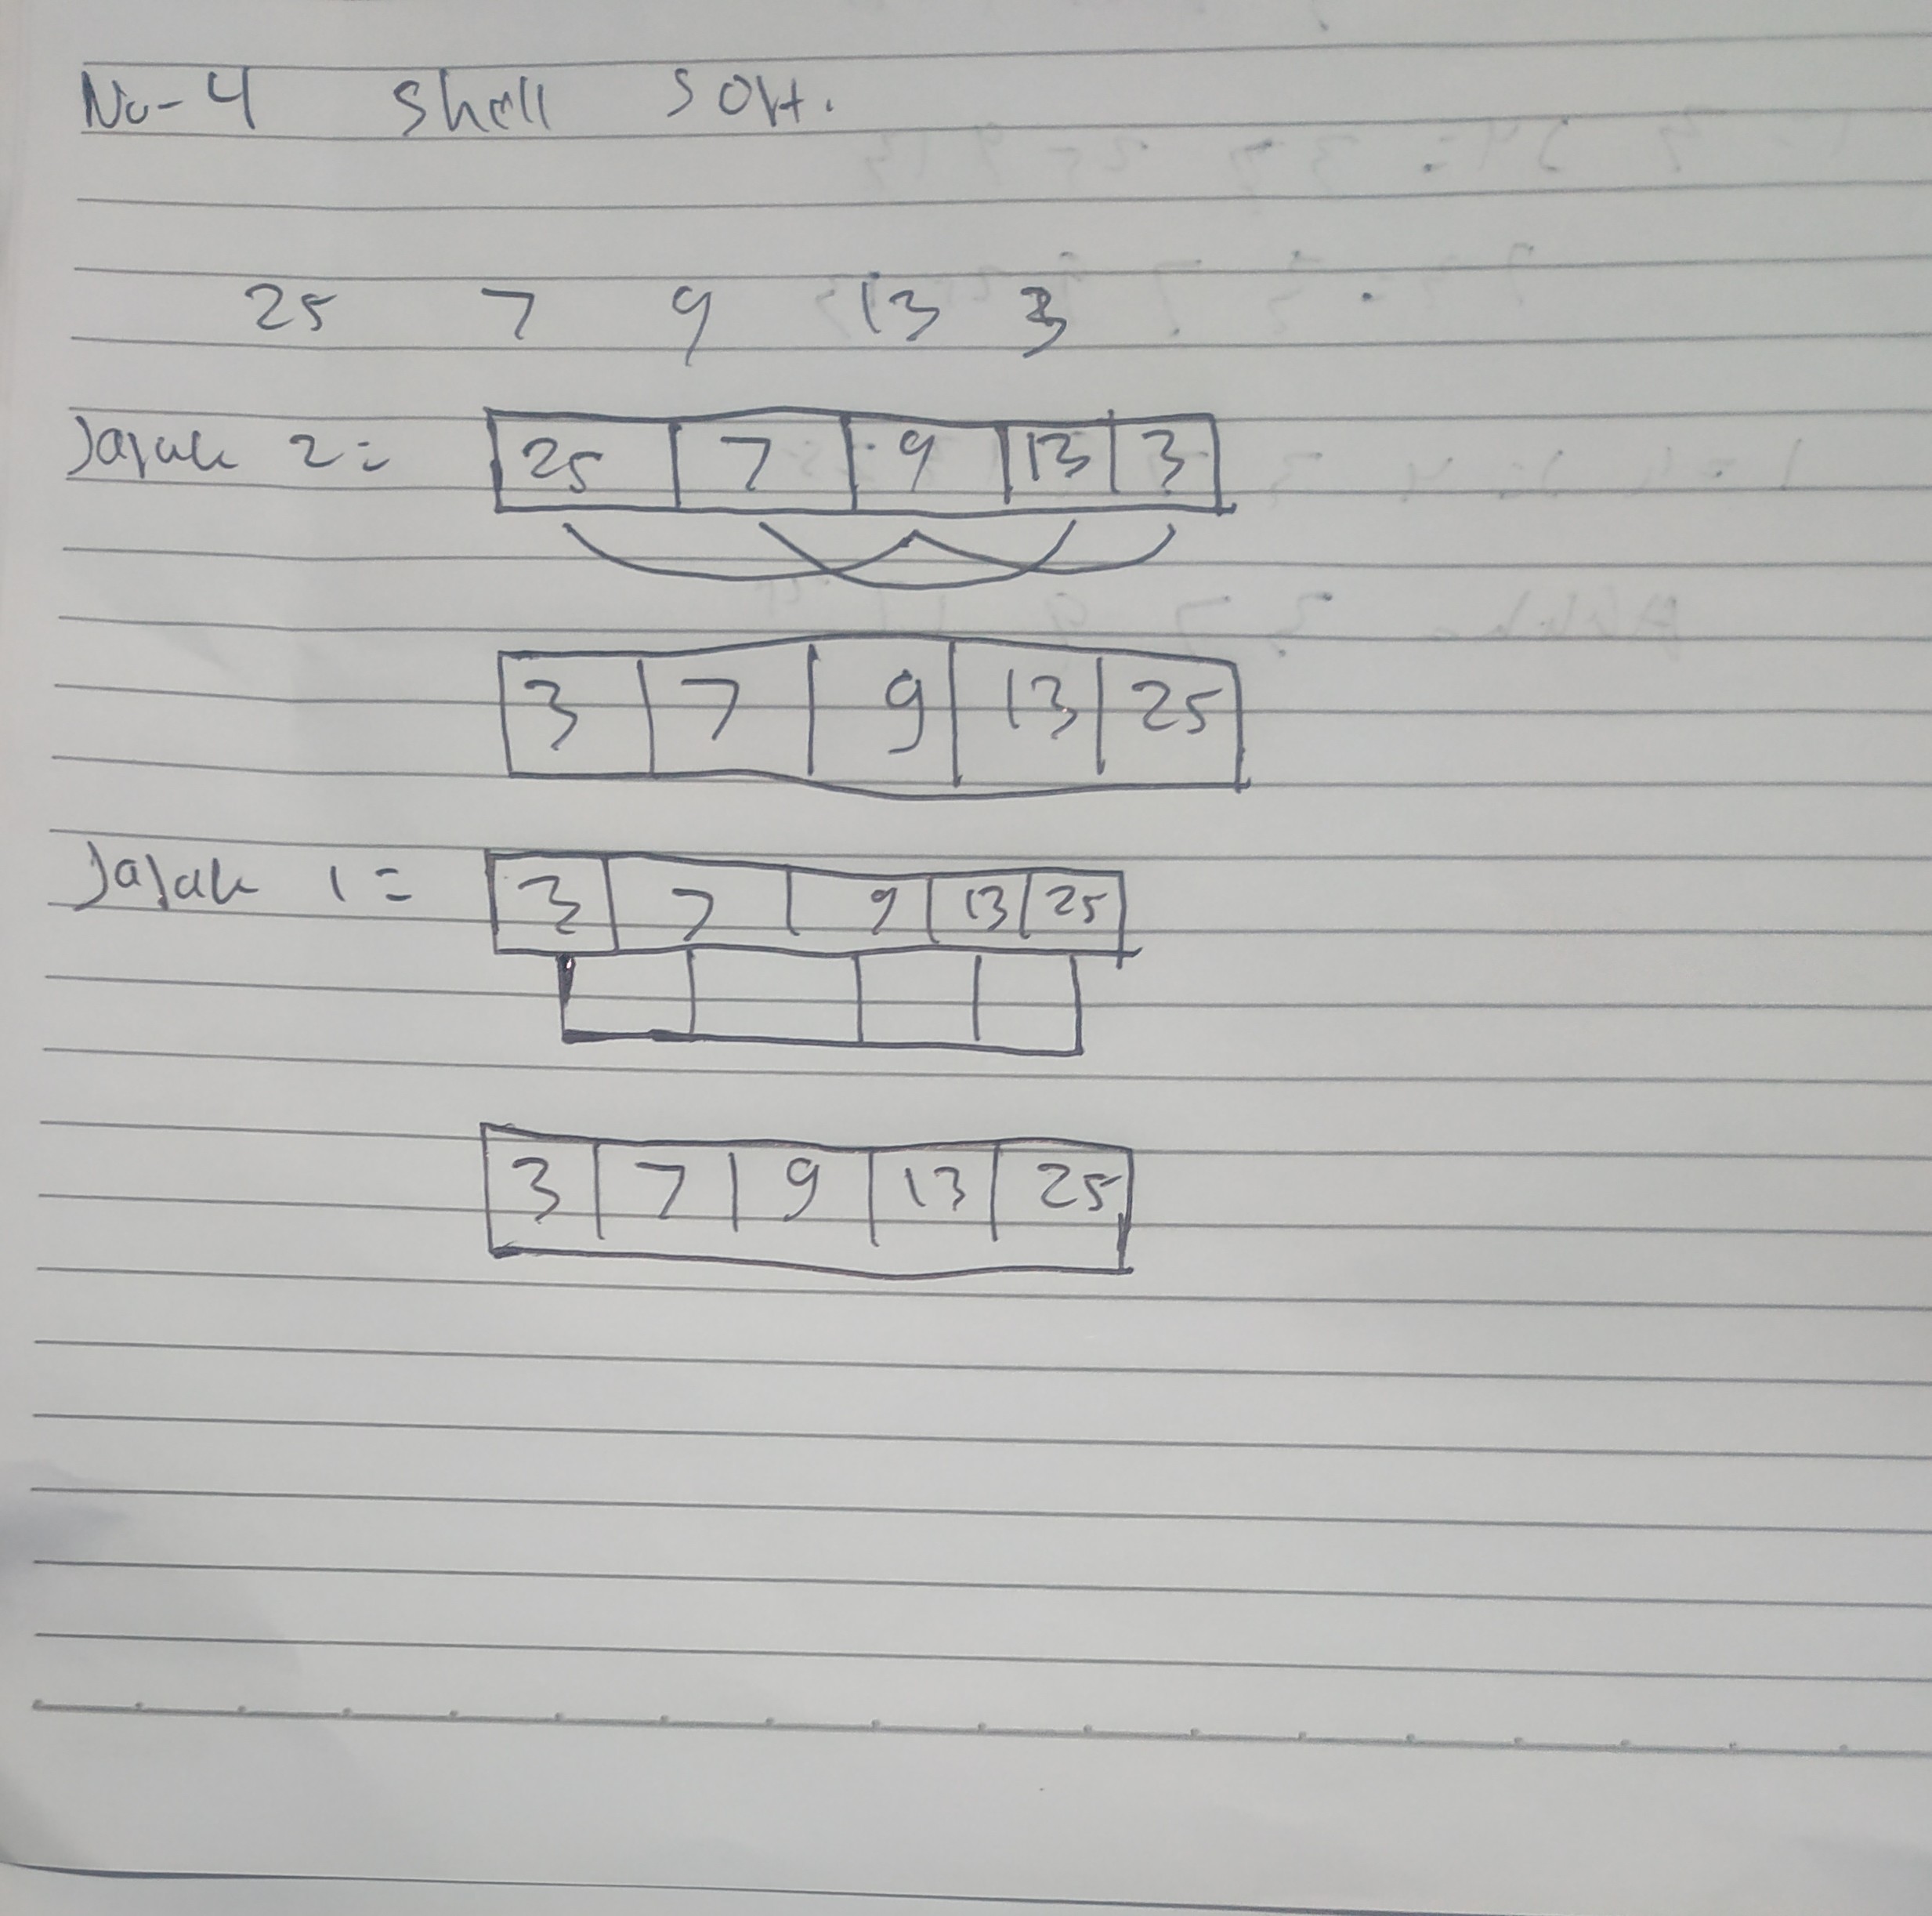 No-4 Shell Sort.
25 7 9 13 3
Jarak 2= 25 7 9 13 3
3 7 9 13 25
Jarak 1= 3 7 9 13 25
3 7 9 13 25